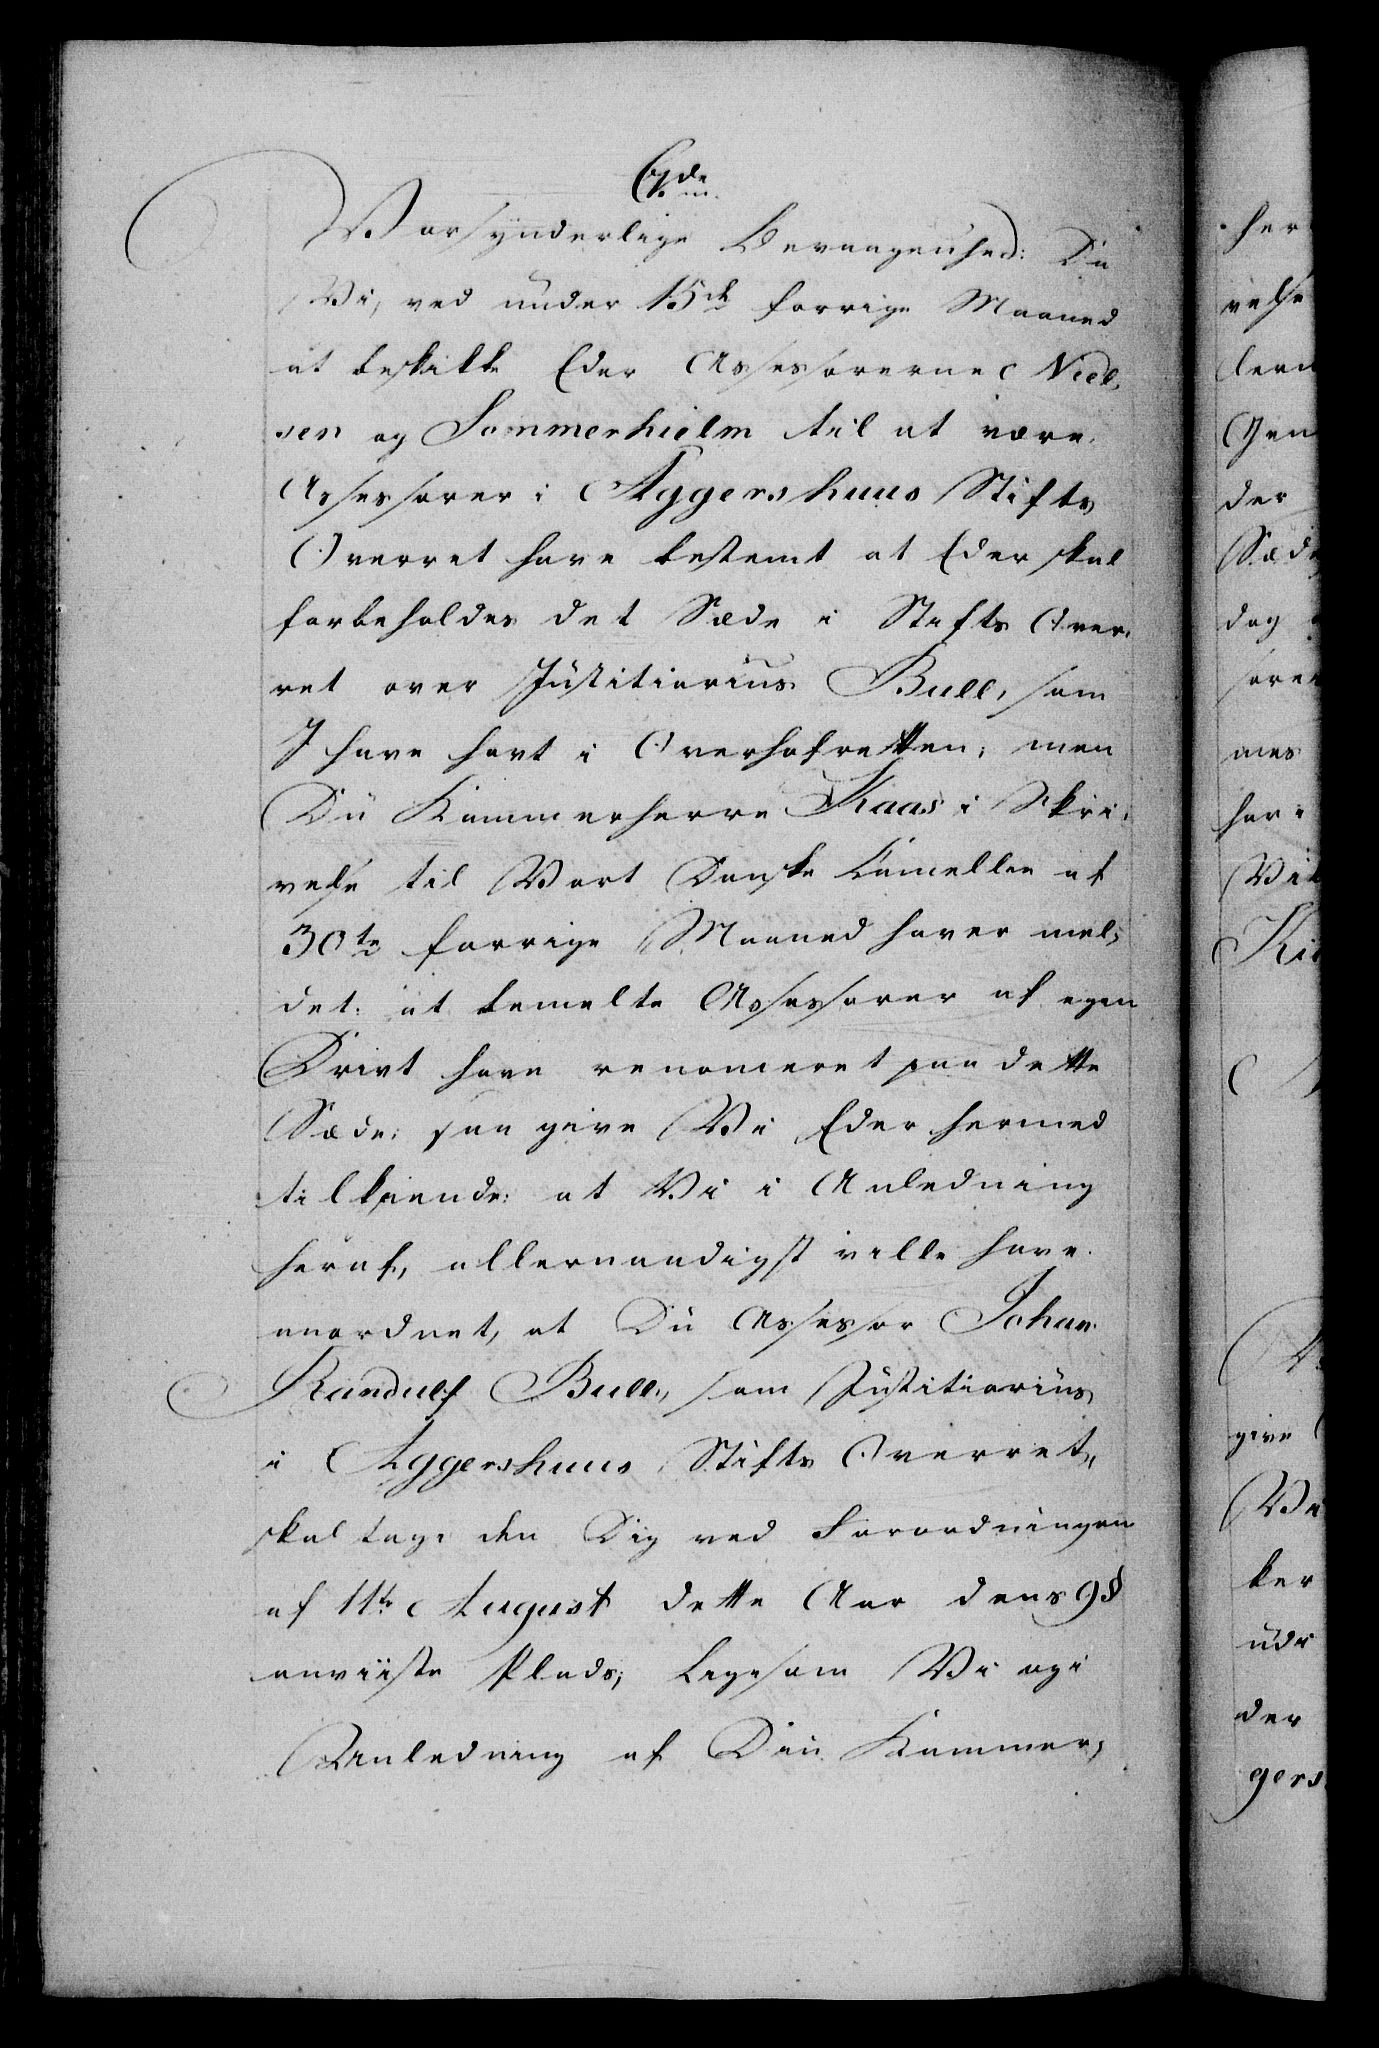 Vor synderlige Bevaagenhed: Da
Vi, ved under 15de forrige Maaned
at beskikke Eder Assessorerne Niel,
sen og Sommerhielm til at være
Assessorer i Aggershuus Stifts
Overret have bestemt at Eder skal
forbeholdes det Sæde i Stifts Over,
ret over Justitiarius Bull, som
I have havt i Overhofretten; men
Du Kammerherre Kaas i Skri,
velse til Vort Danske Cancellie af
30te forrige Maaned haver mel,
det: at bemelte Assessorer af egen
Drivt have renonceret paa dette
Sæde; saa give Vi Eder hermed
tilkiende: at Vi i Anledning
heraf, allernaadigst ville have
anordnet, at Du Assessor Johan
Randulf Bull, som Justitiarius
i Aggershuus Stifts Overret,
skal tage den Dig ved Forordningen
af 11te August dette Aar dens 9§
anviiste Plads; Ligesom Vi og i
Anledning af Din Kammer,
her
velse
der
Sæde
dag
mes
har i
give
ker
der
gers